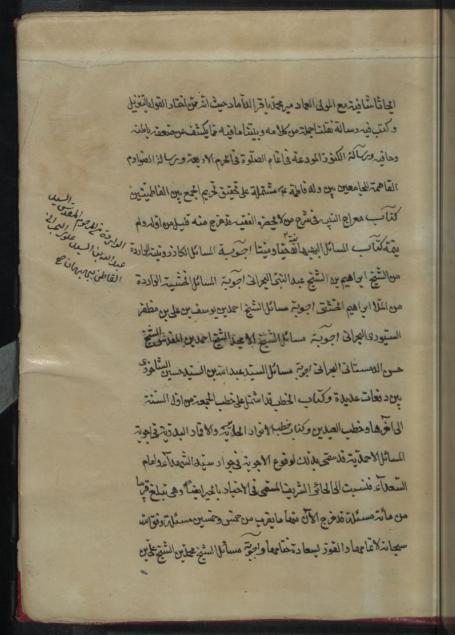 ابحاثا شافية مع المولى العماد مير محمد باقر الداماد حيث انه ممن اختار القول بالتنزيل
وكتب فيه رسالة نقلنا جملة من كلامه وبينا ما فيه مما يكشف عن ضعف باطنه
وخافيه ورسالة الكنوز المودعة في اتمام الصلوة في الحرم الاربعة ورسالة الصوارم
القاصمة للجامعين بين ولد فاطمة مشتملة على تحقيق تحريم الجمع بين الفاطميتين
كتاب معراج النبيه في شرح من لا يحضره الفقيه قد خرج منه قليل من اوله ولم
يتم كتاب المسائل اجوبة المسائل الكازرونية الواردة
من الشيخ ابراهيم بن الشيخ عبد النبي البحراني اجوبة المسائل الخشتية الواردة
من الملا ابراهيم الخشتي اجوبة مسائل الشيخ احمد بن يوسف بن علي بن مظفر
السيوري البحراني اجوبة مسائل الشيخ الامجد الشيخ احمد بن المقدس الشيخ
حسن الدمستاني البحراني اجوبة مسائل السيد عبد الله بن السيد حسين الشاخوري
بين دفعات عديدة وكتاب الخطب قد اشتمل على خطب الجمعة من اول السنة
الى آخرها وخطب العيدين وكتاب انوار الحائرية والاقمار البدرية في اجوبة
المسائل الاحمدية قد سمي بذلك لوقوع الاجوبة في جوار سيد الشهداء وامام
السعداء فنسبت الى الحائر الشريف المسمى في الاخبار بالحير ايضا وهي تبلغ قريبا
من مائة مسئلة قد خرج الآن منها ما يقرب من خمس وخمسين مسئلة وفق الله
سبحانه لاتمامها والفوز بسعادة ختامها واجوبة مسائل الشيخ محمد بن الشيخ علي بن
المرحوم المقدس السيد
عبد الله بن السيد علوي البحراني
القاطن ببهبهان